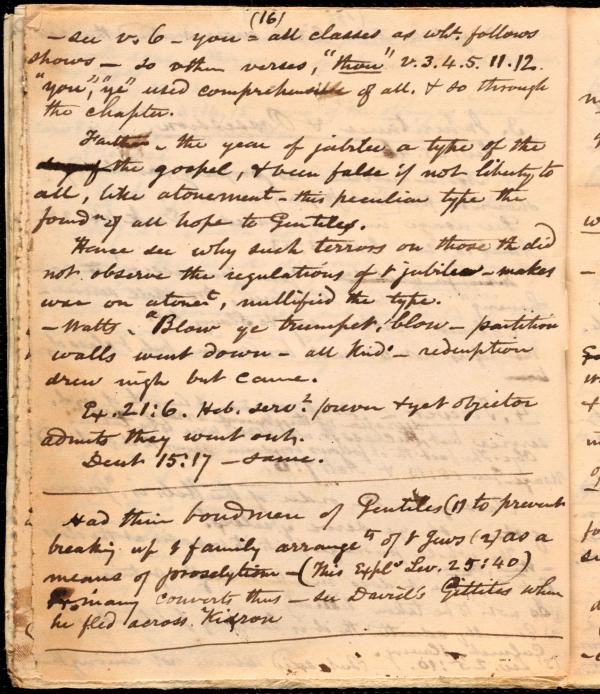 (16)
- see v. 6 - you = all classes as wht. follows
shows - so other verses, "thou" v. 3. 4. 5. 11. 12.
"you", "ye" used comprehensive of all. & so through
the chapter.
Farther - the year of jubilee a type of the
the gospel, & been false if not liberty to
all, like atonement - this peculiar type the
foundn of all hope to Gentiles.
Hence see why such terrors on those th did
not observe the regulations of t jubilee - makes
war on atonet, nullified the type.
- Watts - "Blow ye trumpet, blow - partition
walls went down - all Kinds - redemption
drew nigh but came.
Ex. 21:6. Heb. servt forever & yet objector
admits they went out.
Deut 15:17 - same.
Had their bondmen of Gentiles (1) to prevent
breaking up t family arrangets of t Jews (2) as a
means of proselytism - (This Expls Lev. 25:40)
many converts thus - see David's Gittites when
he fled across Kidron